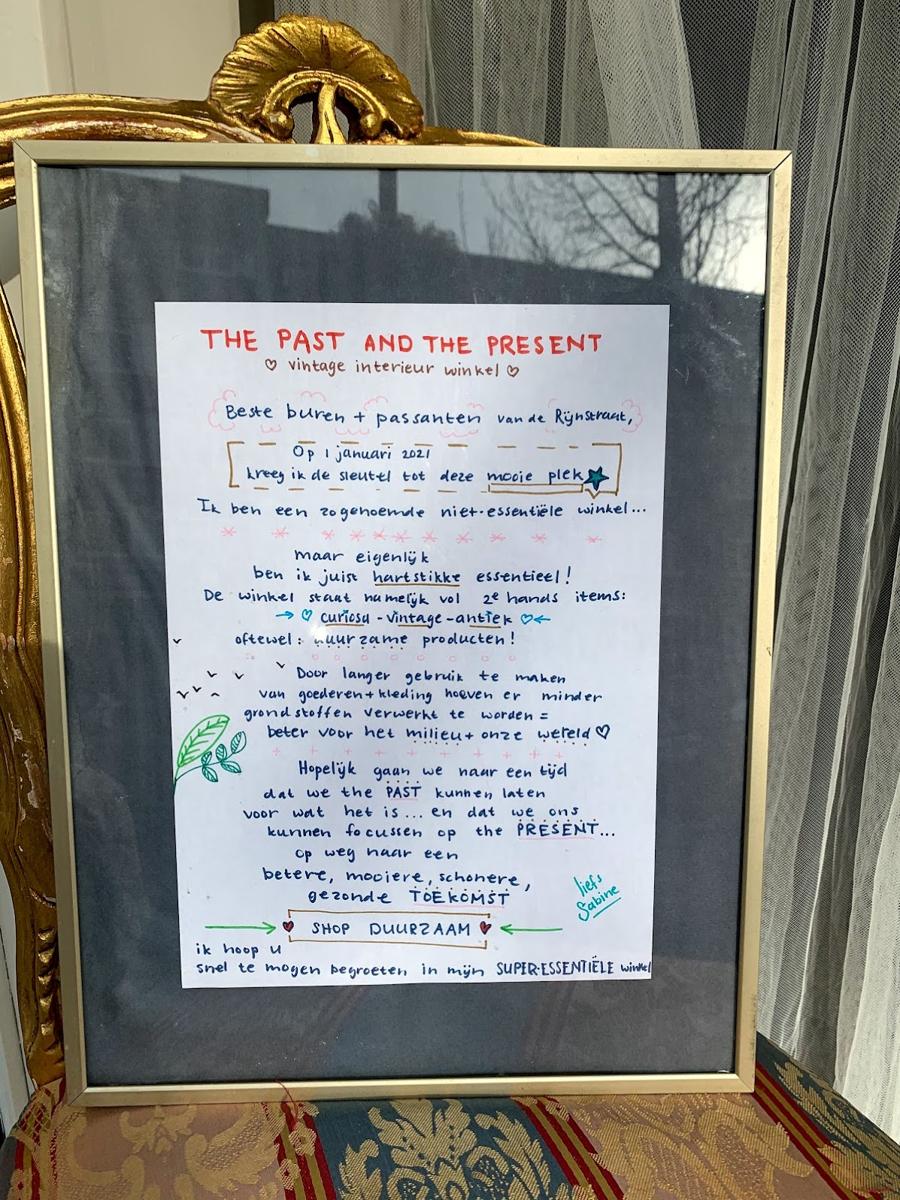 THE PAST AND THE PRESENT
♡ vintage interieur winkel ♡
Beste buren + passanten van de Rijnstraat,
Op 1 januari 2021
kreeg ik de sleutel tot deze mooie plek
Ik ben een zogenoemde niet-essentiële winkel...
maar eigenlijk
ben ik juist hartstikke essentieel!
De winkel staat namelijk vol 2e hands items:
→ ♡ curiosa - vintage - antiek ♡ ←
oftewel: duurzame producten!
Door langer gebruik te maken
van goederen + kleding hoeven er minder
grondstoffen verwerkt te worden =
beter voor het milieu + onze wereld ♡
Hopelijk gaan we naar een tijd
dat we the PAST kunnen laten
voor wat het is... en dat we ons
kunnen focussen op the PRESENT...
op weg naar een
betere, mooiere, schonere,
gezonde TOEKOMST
liefs
Sabine
→ ♥ SHOP DUURZAAM ♥ ←
ik hoop u
snel te mogen begroeten in mijn SUPER-ESSENTIËLE winkel